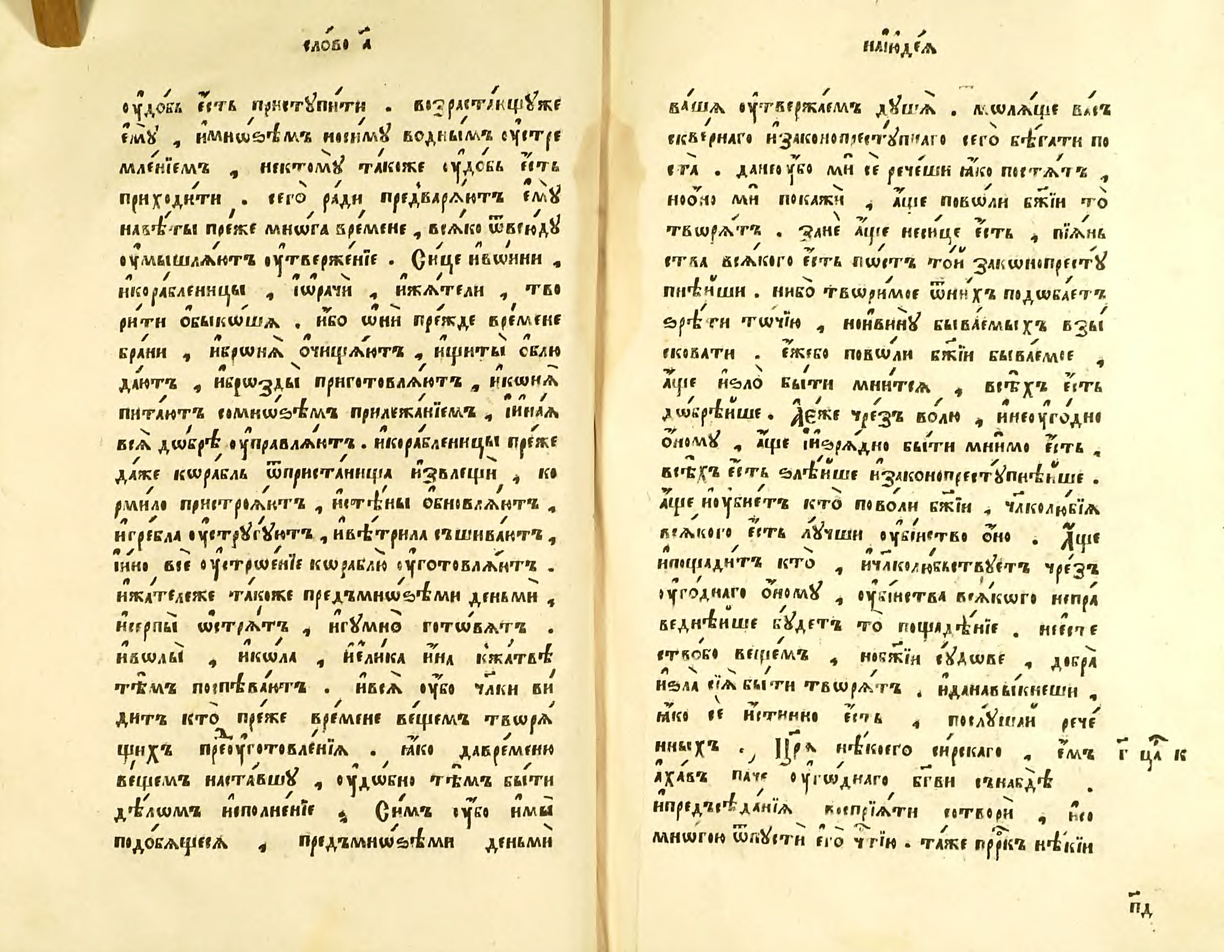 сло́во а҃
оу҆до́бь є҆́сть пристꙋпи́ти . возраста́ющꙋже
є҆мꙋ̀ , и҆мно́ѕѣмъ носи́мꙋ во́днымъ оу҆стре
мле́нїемъ , нектомꙋ̀ та́коже оу҆до́бь є҆́сть
приходи́ти . сего̀ ра́ди предваря́ютъ є҆мꙋ̀
навѣ́ты пре́же мно́га вре́мене , вся́ко ѿвсю́дꙋ
оу҆мышля́ютъ оу҆твержє́нїе . Си́це и҆во́ини ,
и҆кора́бленицы , і҆ѡрачѝ , и҆жѧ́тели , тво
ри́ти ѻ҆быко́ша . и҆́бо ѡ҆нѝ пре́жде вре́мене
бра́ни , и҆броня̀ ѻ҆чища́ютъ , и҆щиты̀ ѻ҆блю
да́ютъ , и҆брѡзды̀ приготовля́ютъ , и҆коня̀
пита́ютъ сомно́ѕѣмъ прилежа́нїемъ , и҆и҆на́ѧ
всѧ̀ до́брѣ оу҆правля́ютъ . и҆кора́бленицы пре́же
да́же кора́бль ѿприста́нища и҆звещѝ , ко
рми́ло пристро́ѧютъ , и҆стѣ́ны ѻ҆бновля́ютъ ,
и҆гре́бла оу҆стрꙋгꙋ́ютъ , и҆вѣ́трила сшива́ютъ ,
и҆и҆но всѐ оу҆строє́нїе кораблю̀ оу҆готовля́ютъ .
и҆жа́тележе та́коже предъмно́ѕѣми де́ньми ,
и҆се́рпы ѡ҆стрѧ́тъ , и҆гꙋмно̀ гото́вѧтъ .
и҆волы̀ , и҆ко́ла , и҆є҆ли́ка и҆́на к̾жа́твѣ
тѣ́мъ поспѣва́ютъ . и҆всѧ̀ оу҆́бо чл҃ки ви
дитъ кто̀ пре́же вре́мене ве́щемъ творѧ́
щихъ преоу҆гото́вле́нїѧ . ꙗ҆́ко давре́меню
ве́щемъ наста́вшꙋ , оу҆до́бно тѣ́мъ бы́ти
дѣ́ломъ и҆сполне́нїе , Си́мъ оу҆́бо и҆мы̀
подо́бѧщесѧ , предъмно́ѕѣми де́ньмѝ
наї҆ю҆де́ѧ
ва́шѧ оу҆твержа́емъ дꙋ́шѧ . мо́лѧще ва́съ
скве́рнаго и҆законопрестꙋ́пнаго сего̀ бѣ́гати по
ста̀ . данеоу҆́бо мѝ сѐ рече́ши ꙗ҆́ко постѧ́тъ ,
но́но мѝ покажѝ , а҆́ще пово́ли бж҃їи то̀
творѧ́тъ . занѐ а҆́ще неси́це є҆́сть , пїѧ́нь
ства всѧ́кого є҆́сть по́стъ то́и законопрестꙋ
пнѣ́йши . нибо̀ твори́мое ѿни́хъ подоба́етъ
ѕрѣ́ти то́чїю , нои҆винꙋ̀ быва́емыхъ взы́
сковати . є҆́жебо пово́ли бж҃їи быва́емое ,
а҆́ще и҆ѕло̀ бы́ти мни́тсѧ , всѣ́хъ є҆́сть
добрѣ́йше . А҆є҆́же чре́зъ во́лю , и҆неоу҆го́дно
ѻ҆́номꙋ , а҆́ще и҆и҆ѕрѧ́дно бы́ти мни́мо є҆́сть ,
всѣ́хъ є҆́сть ѕлѣ́йше и҆законопрестꙋпнѣ́йше .
а҆́ще и҆оу҆бїе́тъ кто̀ пово́ли бж҃їи , чл҃колю́бїѧ
всѧ́кого є҆́сть лꙋ́чши оу҆бі́йство ѻ҆но̀ . А҆́ще
и҆пощади́тъ кто̀ , и҆чл҃колю́бствꙋетъ чре́зъ
оу҆го́днаго ѻ҆́номꙋ , оу҆бі́йства всѧ́кого непра
веднѣ́йше бꙋ́детъ то̀ пощадѣ́нїе . несте
ство́бо веще́мъ , нобж҃їи сꙋдовѐ , добра̀
и҆ѕла̀ сїѧ̀ бы́ти творѧ́тъ . и҆данавы́кнеши ,
ꙗ҆́ко сѐ и҆́стинно є҆́сть , послꙋ́шаи рече́
нныхъ . Цр҃ѧ нѣ́коего си́рскаго , є҆́мъ
а҆ха́въ па́че оу҆го́днаго бг҃ви снабдѣ̀ .
и҆предъсѣда́нїѧ воспрїѧ́ти сотворѝ , и҆со
мно́гою ѿпꙋстѝ є҆го̀ чт҃їю . та́же прⷪ҇ркъ нѣ́кїи
г҃ цр҃ств к
п҃д